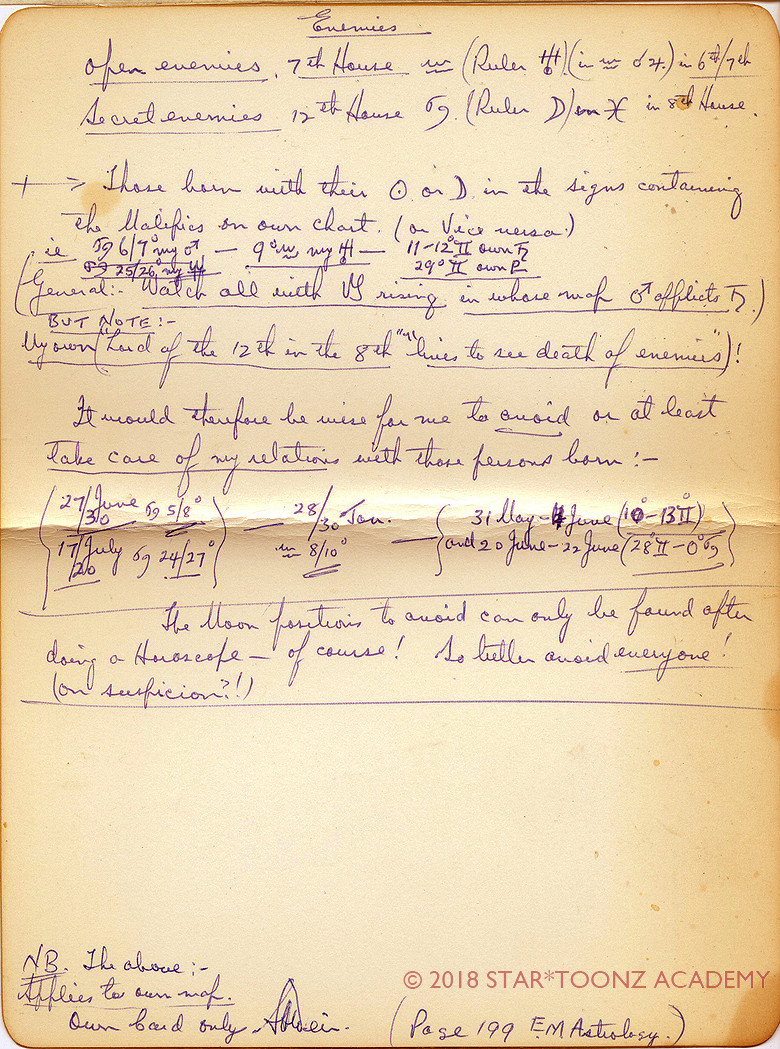 Enemies
Open enemies, 7th House ♒ (Ruler ♅) (in ♒ ☌ ♃.) in 6th/7th
Secret enemies 12th House ♋. (Ruler ☽) in ♓ in 8th House.
+ → Those born with their ☉ or ☽ in the signs containing
the Malifics on own chart. (or Vice versa.)
ie ♋ 6/7° my ♂ — 9° ♒ my ♅ — 11-12° ♊ own ♄
♋ 25/26° my ♆ 29° ♊ own P
(General:- Watch all with ♑ rising in whose map ♂ afflicts ♄.)
BUT NOTE:-
My own (Lord of the 12th in the 8th "lives to see death of enemies")!
It would therefore be wise for me to avoid or at least
take care of my relations with those persons born:-
27/30 June ♋ 5/8° — 28/30 Jan. — 31 May-4 June (10-13° ♊)
17/20 July ♋ 24/27° ♒ 8/10° and 20 June-22 June (28° ♊-0° ♋)
The Moon positions to avoid can only be found after
doing a Horoscope — of course! So better avoid everyone!
(on suspicion?!)
NB. The above:-
Applies to own map.
Own Card only
(Page 199 E.M Astrology.)
© 2018 STAR*TOONZ ACADEMY